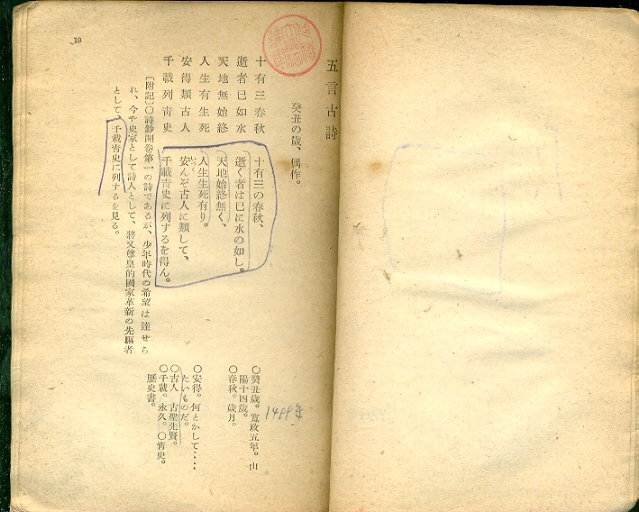 五言古詩
癸丑の歳、偶作。
十有三春秋
逝者已如水
天地無始終
人生有生死
安得類古人
千載列靑史
十有三の春秋、
逝く者は已に水の如し。
天地始終無く、
人生生死有り。
安んぞ古人に類して、
千載靑史に列するを得ん。
〔附記〕〇詩鈔開卷第一の詩であるが、少年時代の希望は達せら
れ、今や史家として詩人として、將又尊皇的國家革新の先驅者
として、千載靑史に列するを見る。
〇癸丑歳。寛政五年。山
陽十四歳。
〇春秋。歳月。
〇安得。何とかして‥‥
たいものだ。
〇古人 古聖先賢。
〇千載。永久。〇靑史。
歴史書。
10